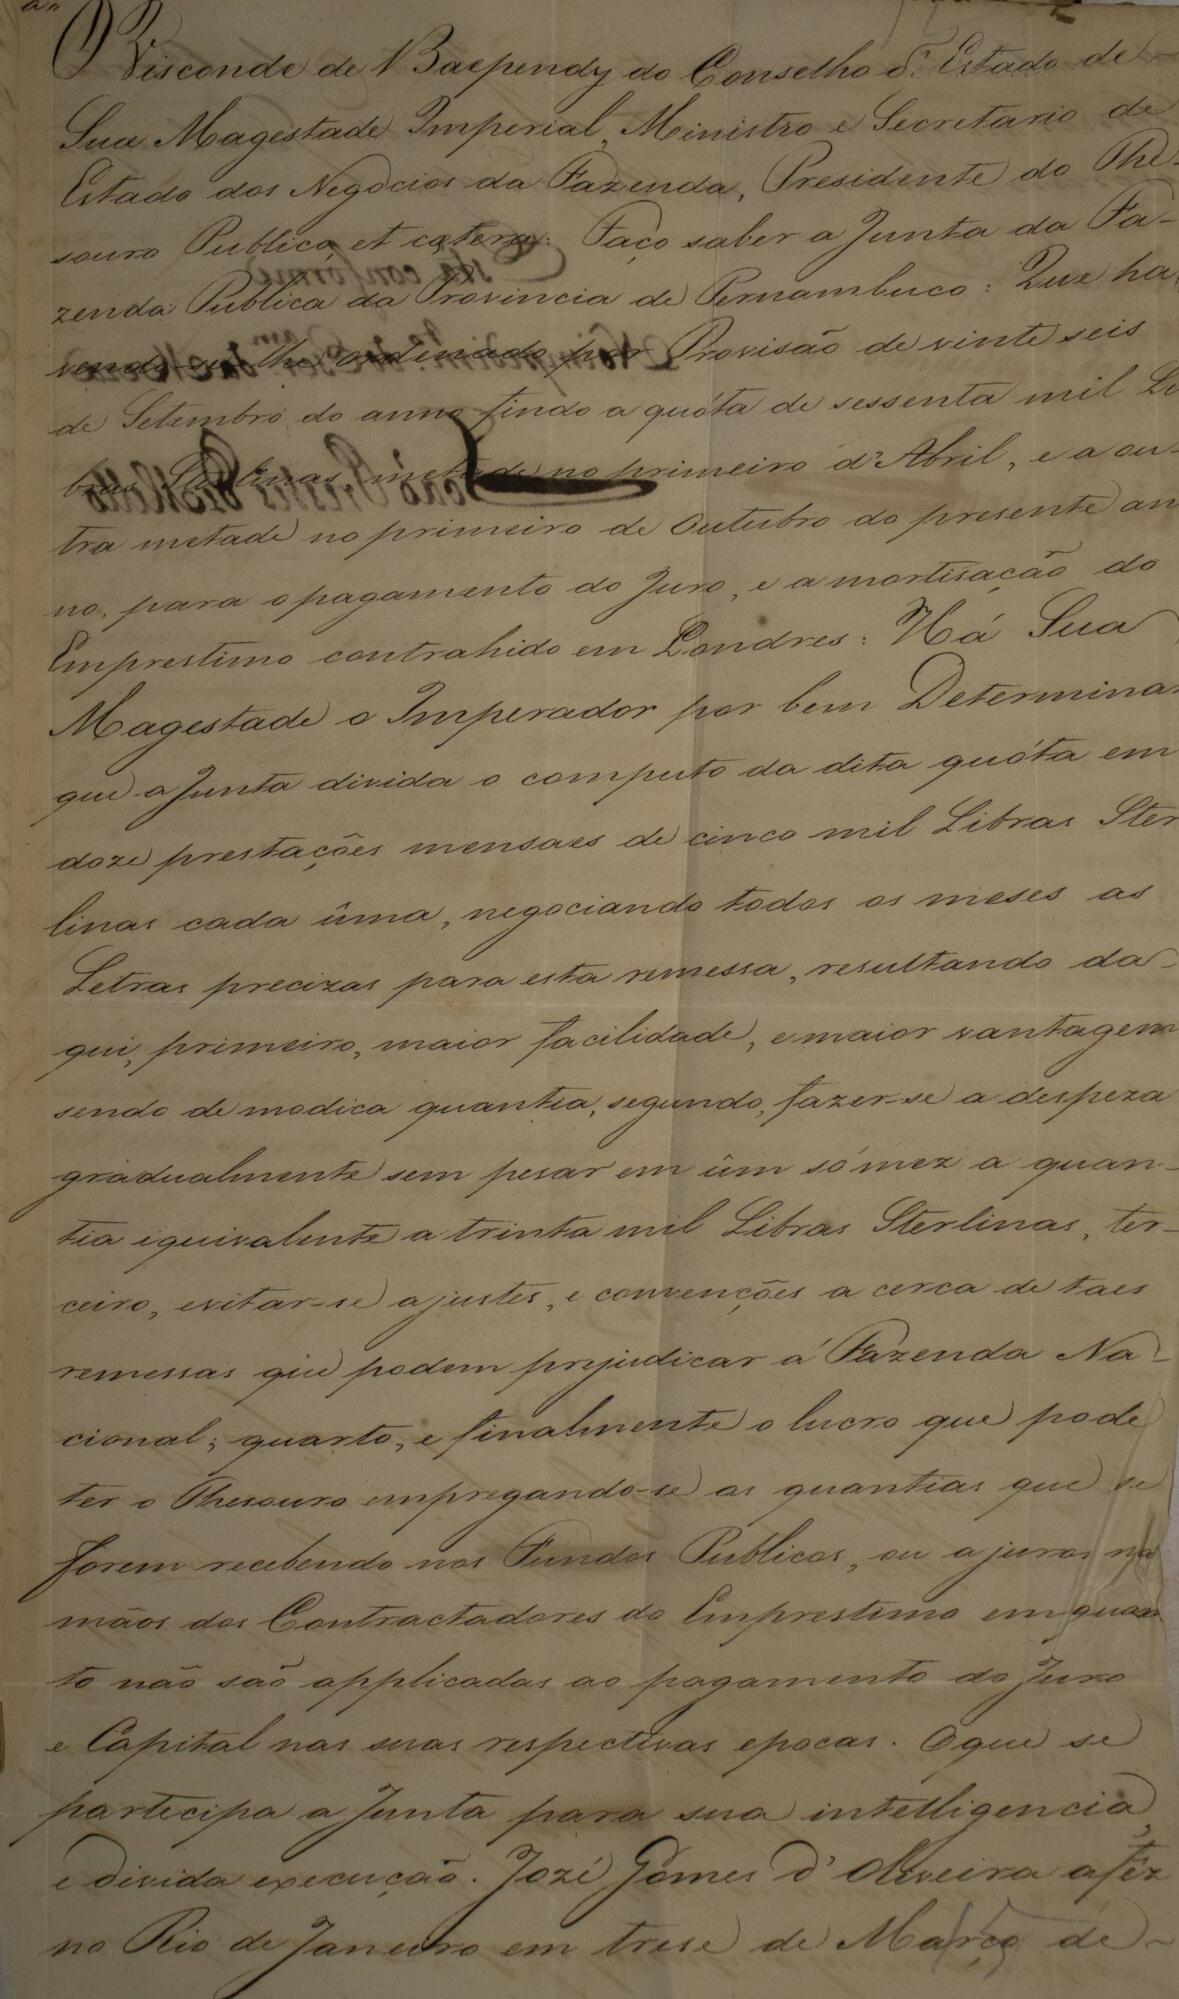 O Visconde de Baependy do Conselho d'Estado de
Sua Magestade Imperial, Ministro e Secretario de
Estado dos Negocios da Fazenda, Presidente do The-
souro Publico, et cætera: Faço saber a Junta da Fa-
zenda Publica da Provincia de Pernambuco: Que ha
vendo-se-lhe ordenado por Provisão de vinte seis
de Setembro do anno findo a quóta de sessenta mil Li
bras Sterlinas, metade no primeiro d'Abril, e a ou-
tra metade no primeiro de Outubro do presente an
no, para o pagamento do Juro, e amortisação do
Emprestimo contrahido em Londres: Há Sua
Magestade o Imperador por bem Determinar
que a Junta divida o computo da dita quóta em
doze prestações mensaes de cinco mil Libras Ster
linas cada ûma, negociando todos os meses as
Letras precizas para esta remessa, resultando da-
qui, primeiro, maior facilidade, e maior vantagem
sendo de modica quantia, segundo, fazer-se a despeza
gradualmente sem pesar em ûm só mez a quan-
tia iquivalente a trinta mil Libras Sterlinas, ter-
ceiro, evitar-se ajustes, e convenções a cerca de taes
remessas que podem prejudicar á Fazenda Na-
cional; quarto, e finalmente o lucro que pode
ter o Thesouro empregando-se as quantias que se
forem recebendo nos Fundos Publicos, ou a juros na
mãos dos Contractadores do Emprestimo emquan
to não são applicadas ao pagamento do Juro
e Capital nas suas respectivas epocas. Oque se
partecipa a Junta para sua intelligencia,
e divida execução. Jozé Gomes d'Oliveira afêz
no Rio de Janeiro em trese de Março de-